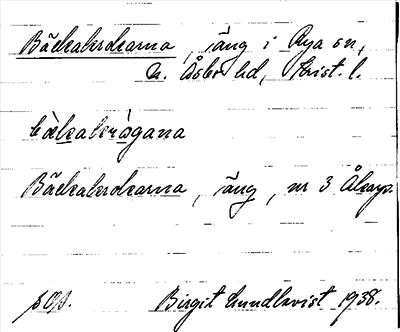 Bäckakrokarna, äng i Rya sn,
N. Åsbo hd, Krist. l.
bäkakrågana
Bäckakrokarna, äng, nr 3 Åkarp.
Birgit Lundkvist 1938.